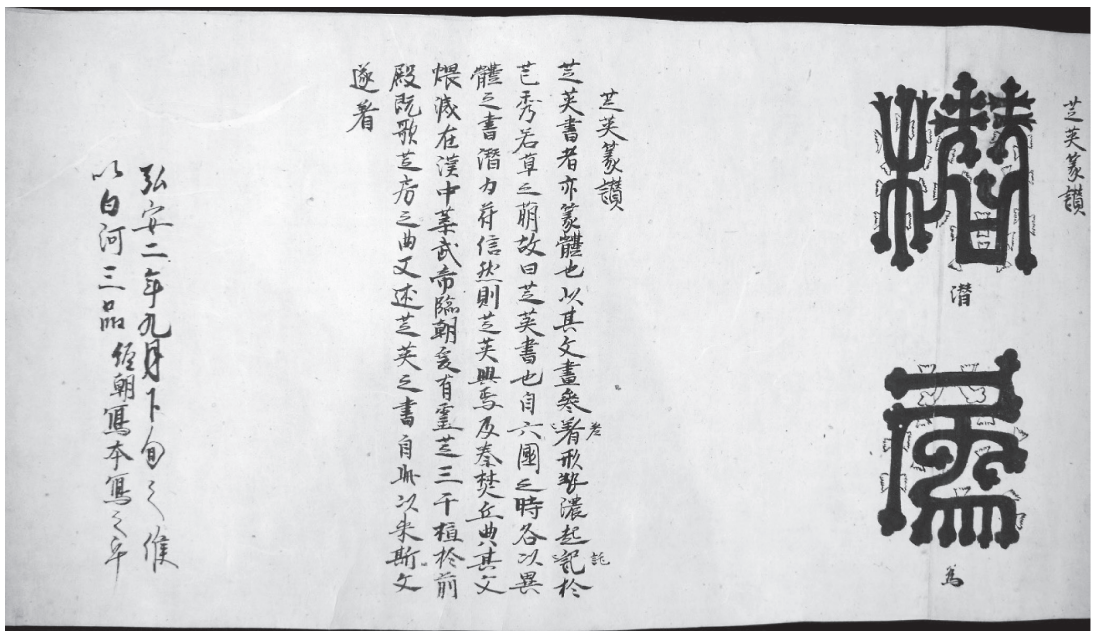 芝英篆讃
潛
為
芝英篆讃
芝英書者亦篆體也以其文畫叅着形勢濃起記於
老
託
芒秀若草之萌故曰芝英書也自六國之時各以異
體之書潛為苻信然則芝英興焉及秦焚丘典其文
煨滅在漢中葉武帝臨朝爰有靈芝三干植於前
殿既歌芝房之曲又述芝英之書自此以来斯文
遂着
弘安二年九月下旬之候
以白河三品経朝寫本寫之畢